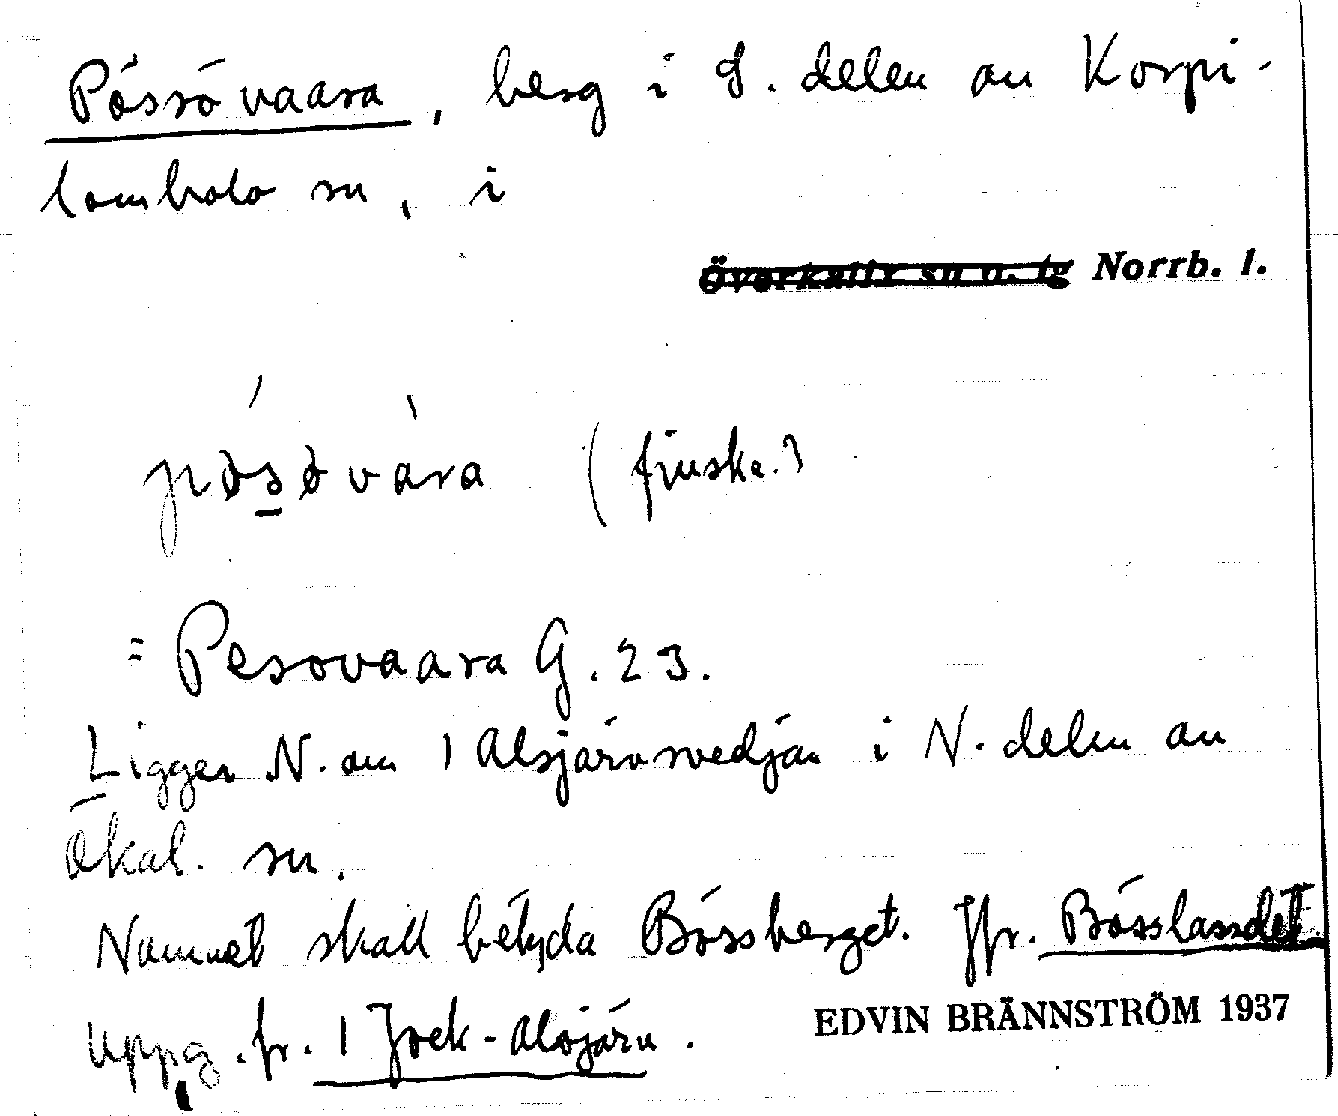 Pössövaara, berg i S. delen av Korpi-
lombolo sn, i
Överkalix sn o. tg Norrb. l.
pøsøvàra (finska.)
= Pesovaara G. 23.
Ligger N. om 1 Alsjärvsvedjan i N. delen av
Ökal. sn.
Namnet skall betyda Bössberget. Jfr. Bösslandet
Uppg. fr. 1 Jock-Alsjärv.
EDVIN BRÄNNSTRÖM 1937